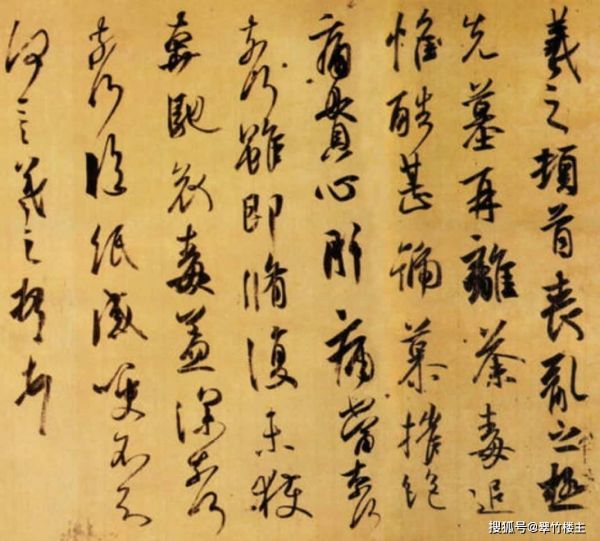 羲之頓首喪亂之極
先墓再離荼毒追
惟酷甚號慕摧絕
痛貫心肝痛當奈何
奈何雖即脩復未獲
奔馳哀毒益深奈何
奈何臨紙感哽不知
何言羲之頓首
搜狐号@翠竹楼主